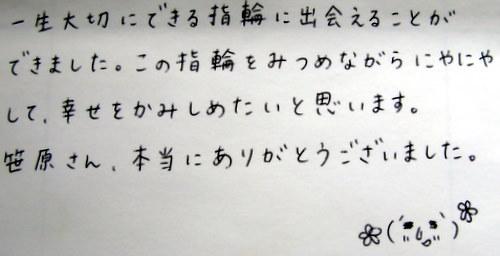 一生大切にできる指輪に出会えることが
できました。この指輪をみつめながらにやにや
して、幸せをかみしめたいと思います。
笹原さん、本当にありがとうございました。